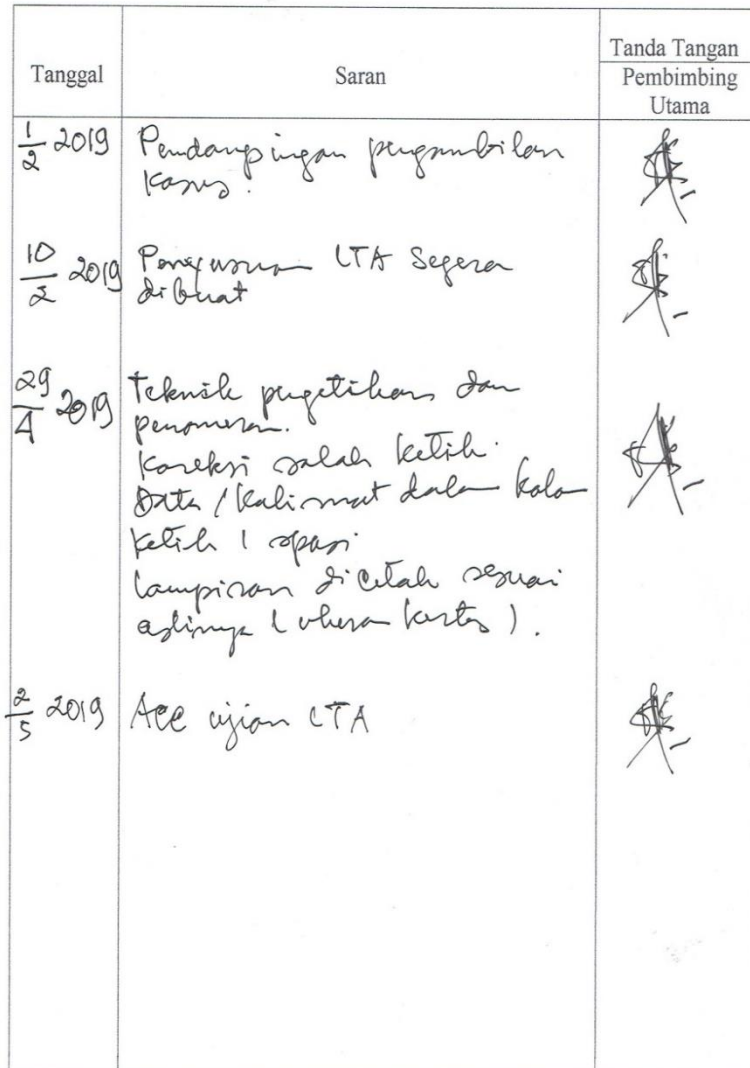 Tanggal
Saran
Tanda Tangan
Pembimbing
Utama
1/2 2019 Pendampingan pengambilan
Kasus.
10/2 2019 Penyusunan LTA Segera
dibuat
29/4 2019 Teknik pengetikan dan
penomeran.
Koreksi salah ketik.
Data / Kalimat dalam kolom
ketik 1 spasi
Lampiran dicetak sesuai
aslinya (ukuran kertas).
2/5 2019 Acc ujian LTA